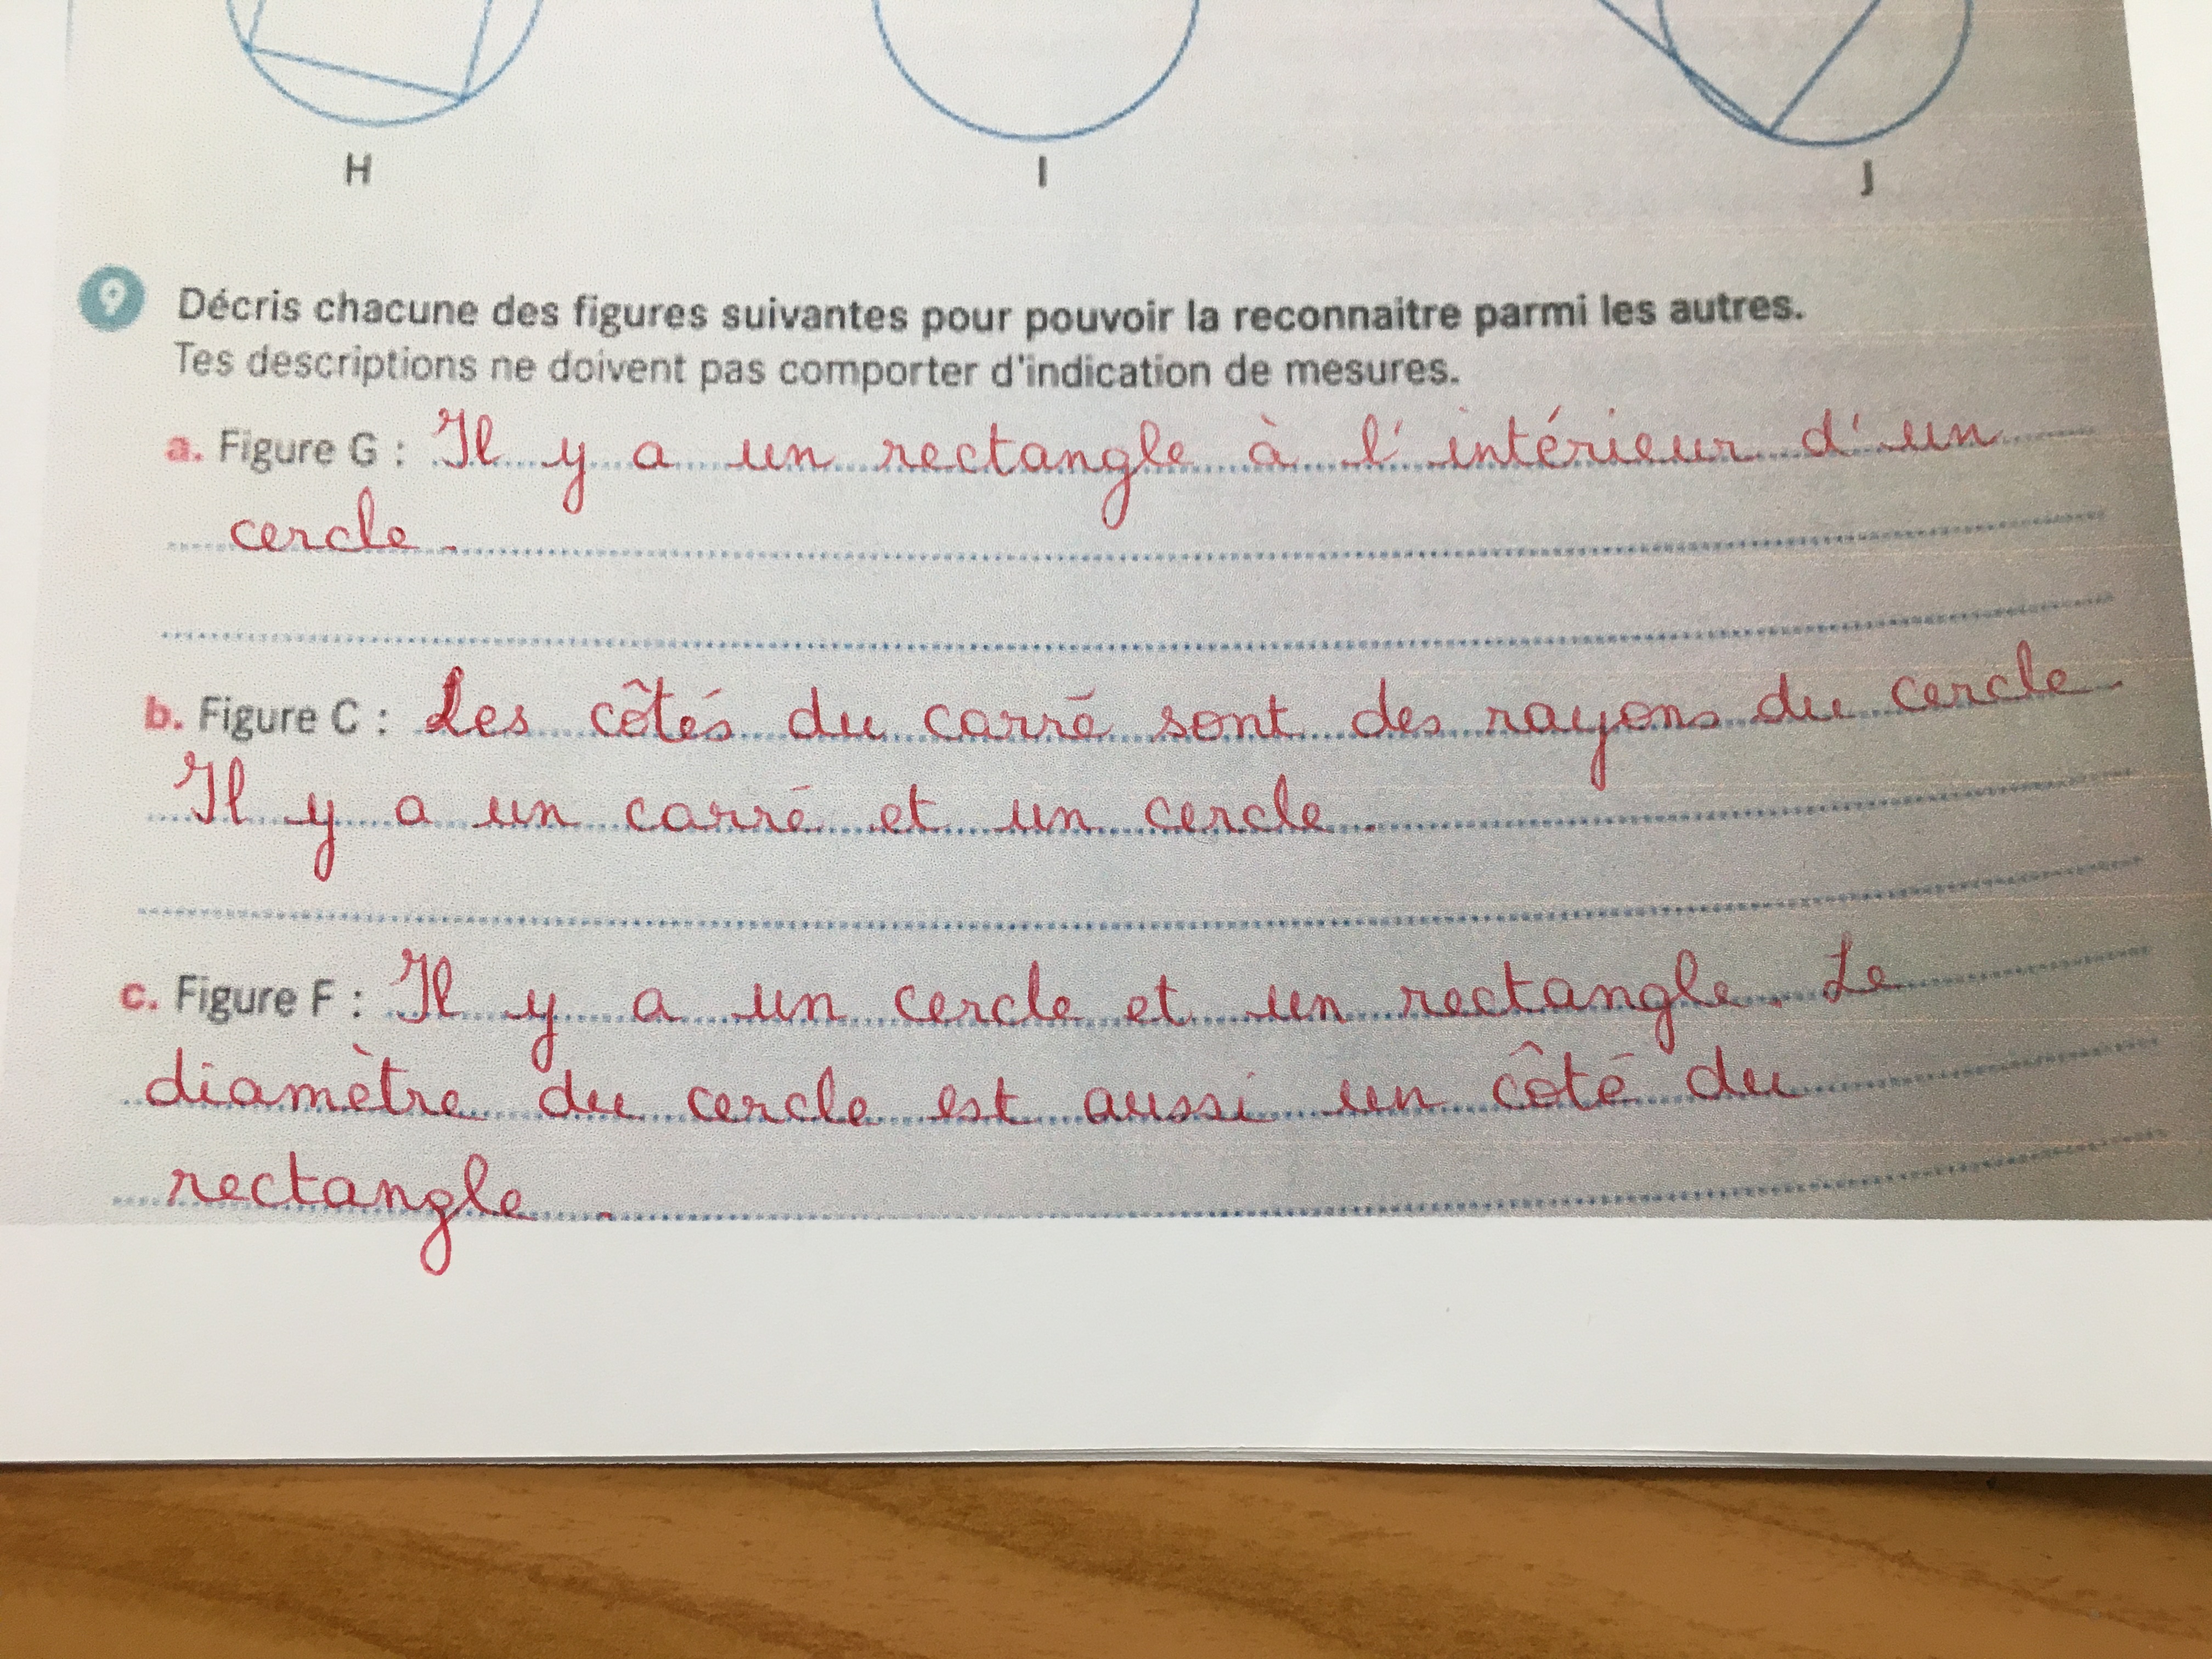 H I J
9 Décris chacune des figures suivantes pour pouvoir la reconnaitre parmi les autres.
Tes descriptions ne doivent pas comporter d'indication de mesures.
a. Figure G : Il y a un rectangle à l'intérieur d'un
cercle.
b. Figure C : Les côtés du carré sont des rayons du cercle.
Il y a un carré et un cercle.
c. Figure F : Il y a un cercle et un rectangle. Le
diamètre du cercle est aussi un côté du
rectangle.